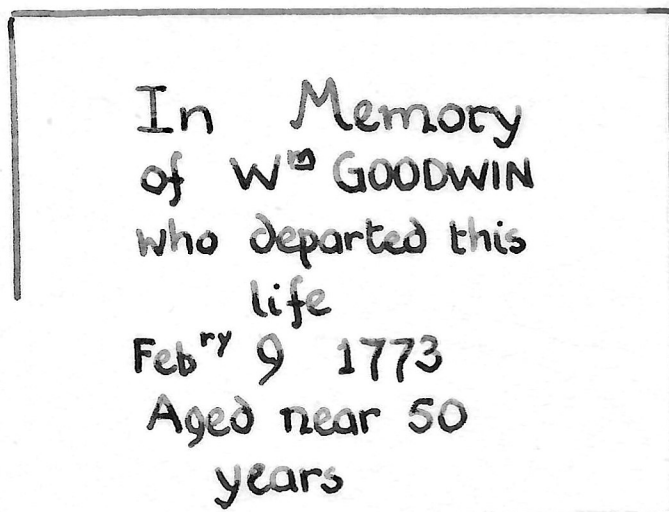 In Memory
of Wm GOODWIN
who departed this
life
Febry 9 1773
Aged near 50
years